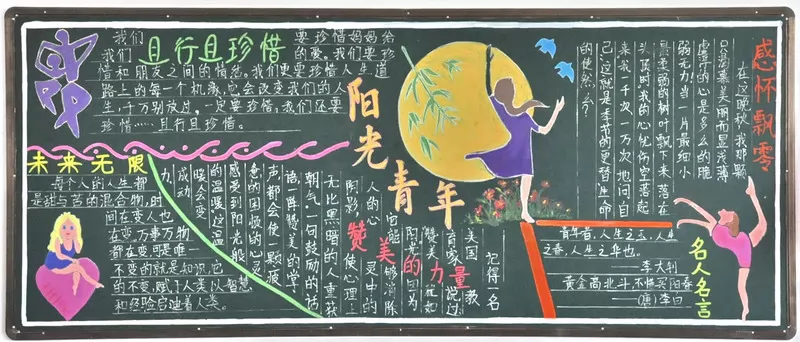 我们 且行且珍惜 要珍惜妈妈给
我们 的爱。我们要珍
惜和朋友之间的情谊。我们更要珍惜人生道
路上的每一个机教,它会改变我们的人
生,千万别放过。一定要珍惜,我们还要
珍惜……且行且珍惜。
未来无限
每个人的人生都
是甜与苦的混合物,时
间在变人也
在变,万事万物
都在变,可是唯一
不变的就是知识,它
的不变,赋予人类以智慧
和经验启迪着人类。
阳光青年
赞美的力量
记得一名
美国教
育家说过
赞美犹如
阳光的
因为
它能够消除
人的心灵中的
阴影,赞使心理上
无比黑暗的人重获
朝气。一句鼓励的话
语一阵赞美的掌
声都会使一颗疲
惫的困极的心灵
感受到阳光般
的温暖这温
暖会变
成动
力
感怀飘零
在这晚秋,我那颗
只沿慕美丽而显浅薄
虚浮的心是多么的脆
弱无力!当一片最细小
最柔弱的树叶飘下来落在
头顶时,我的心忧伤空荡起
来我一千次一万次地问自
己这就是季节的更替生命
的使然么?
名人名言
青年者,人生之王,人生
之春,人生之华也。
——李大钊
黄金高北斗,不惜买阳春
(唐)李白